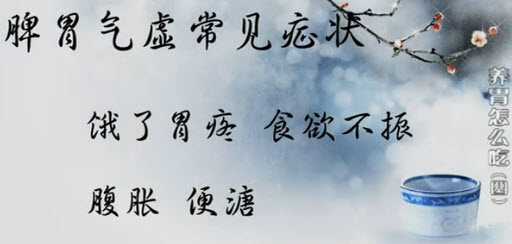 脾胃气虚常见症状
饿了胃疼 食欲不振
腹胀 便溏
养胃怎么吃(四)